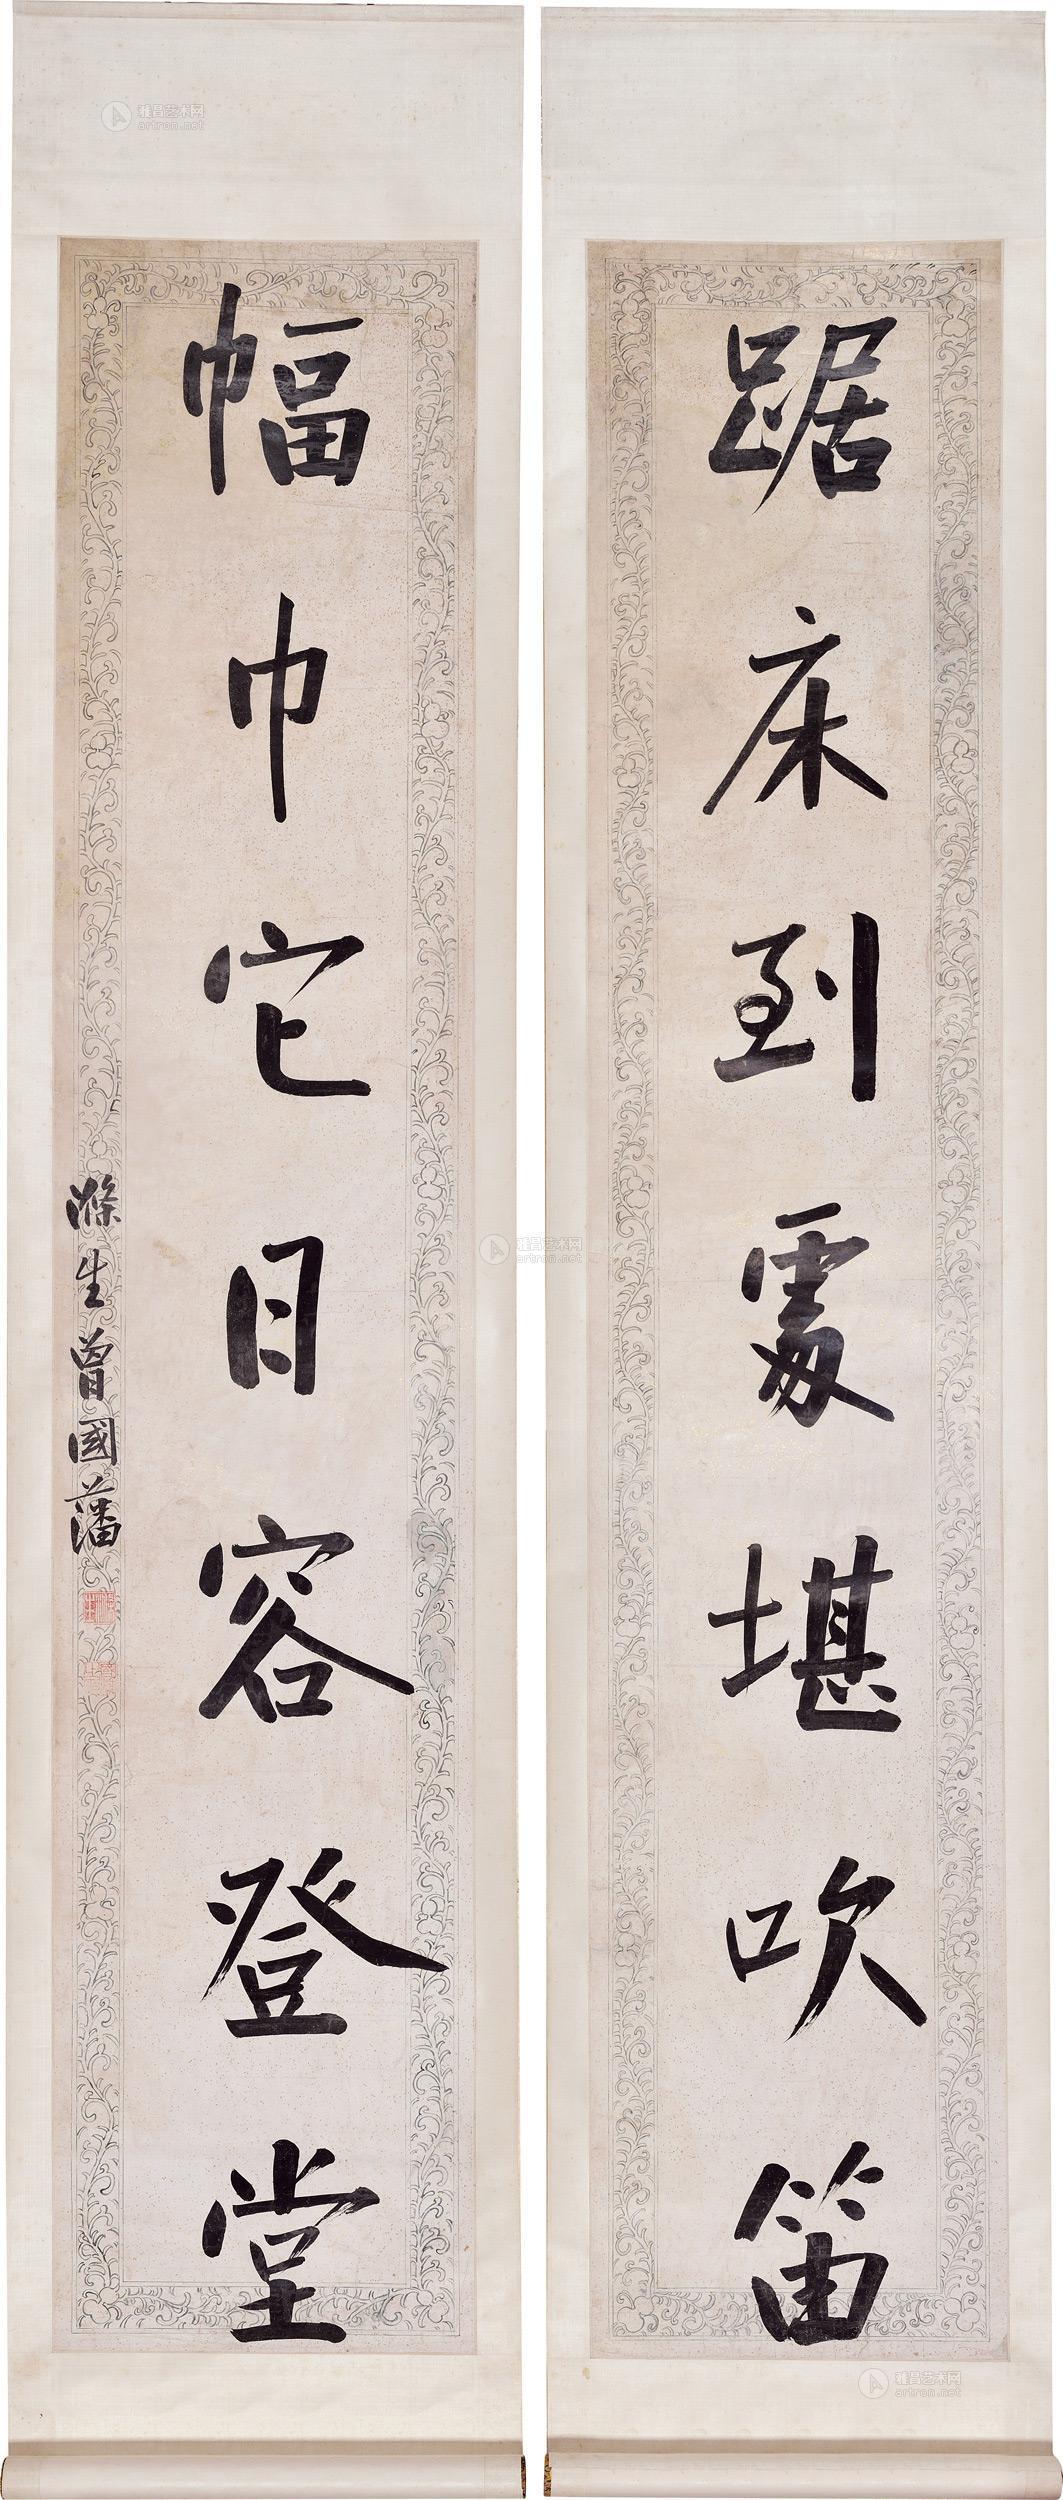 踞床到處堪吹笛
幅巾它日容登堂
滌生曾國藩
雅昌艺术网
artron.net
雅昌艺术网
artron.net
雅昌艺术网
artron.net